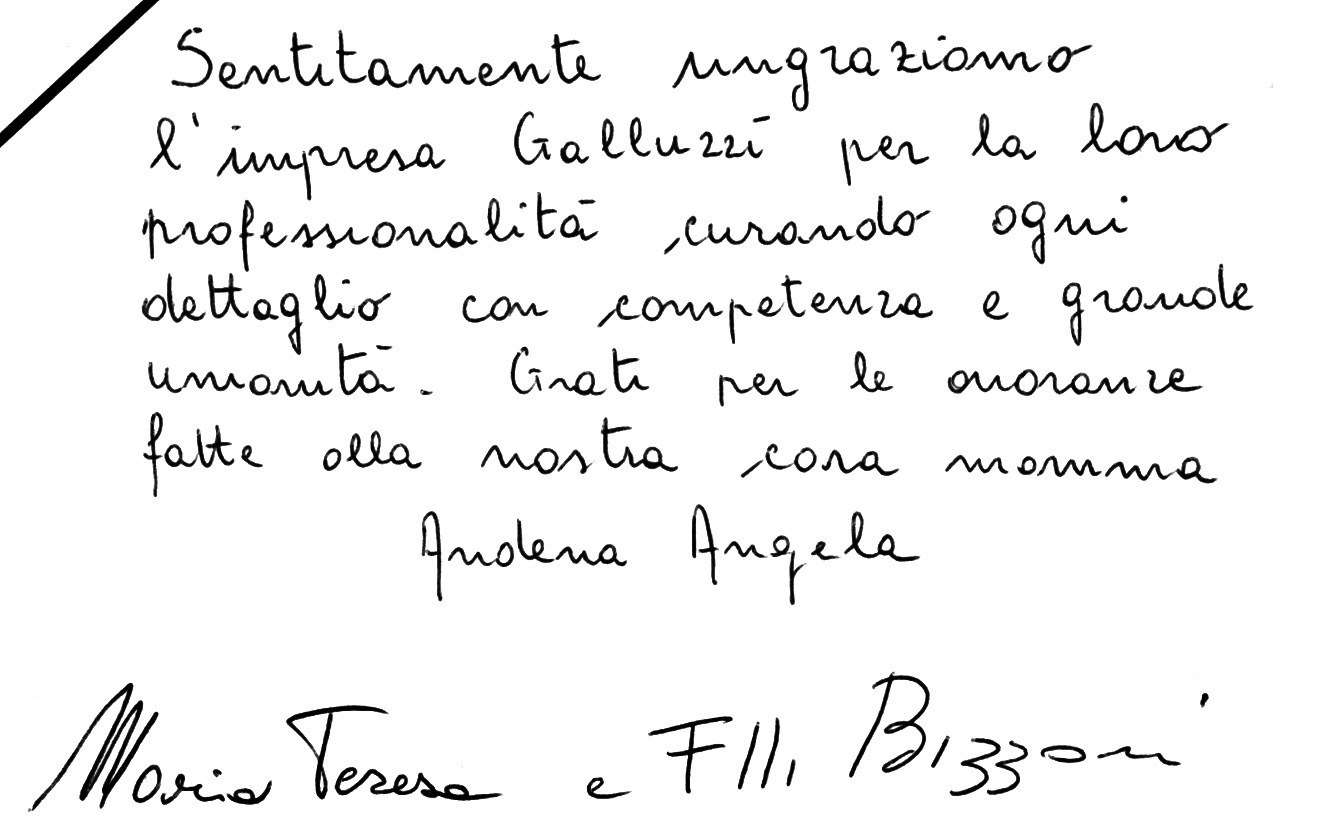 Sentitamente ringraziamo
l'impresa Galluzzi per la loro
professionalità, curando ogni
dettaglio con competenza e grande
umanità. Grati per le onoranze
fatte alla nostra cara mamma
Andena Angela
Maria Teresa e F.lli Bizzoni